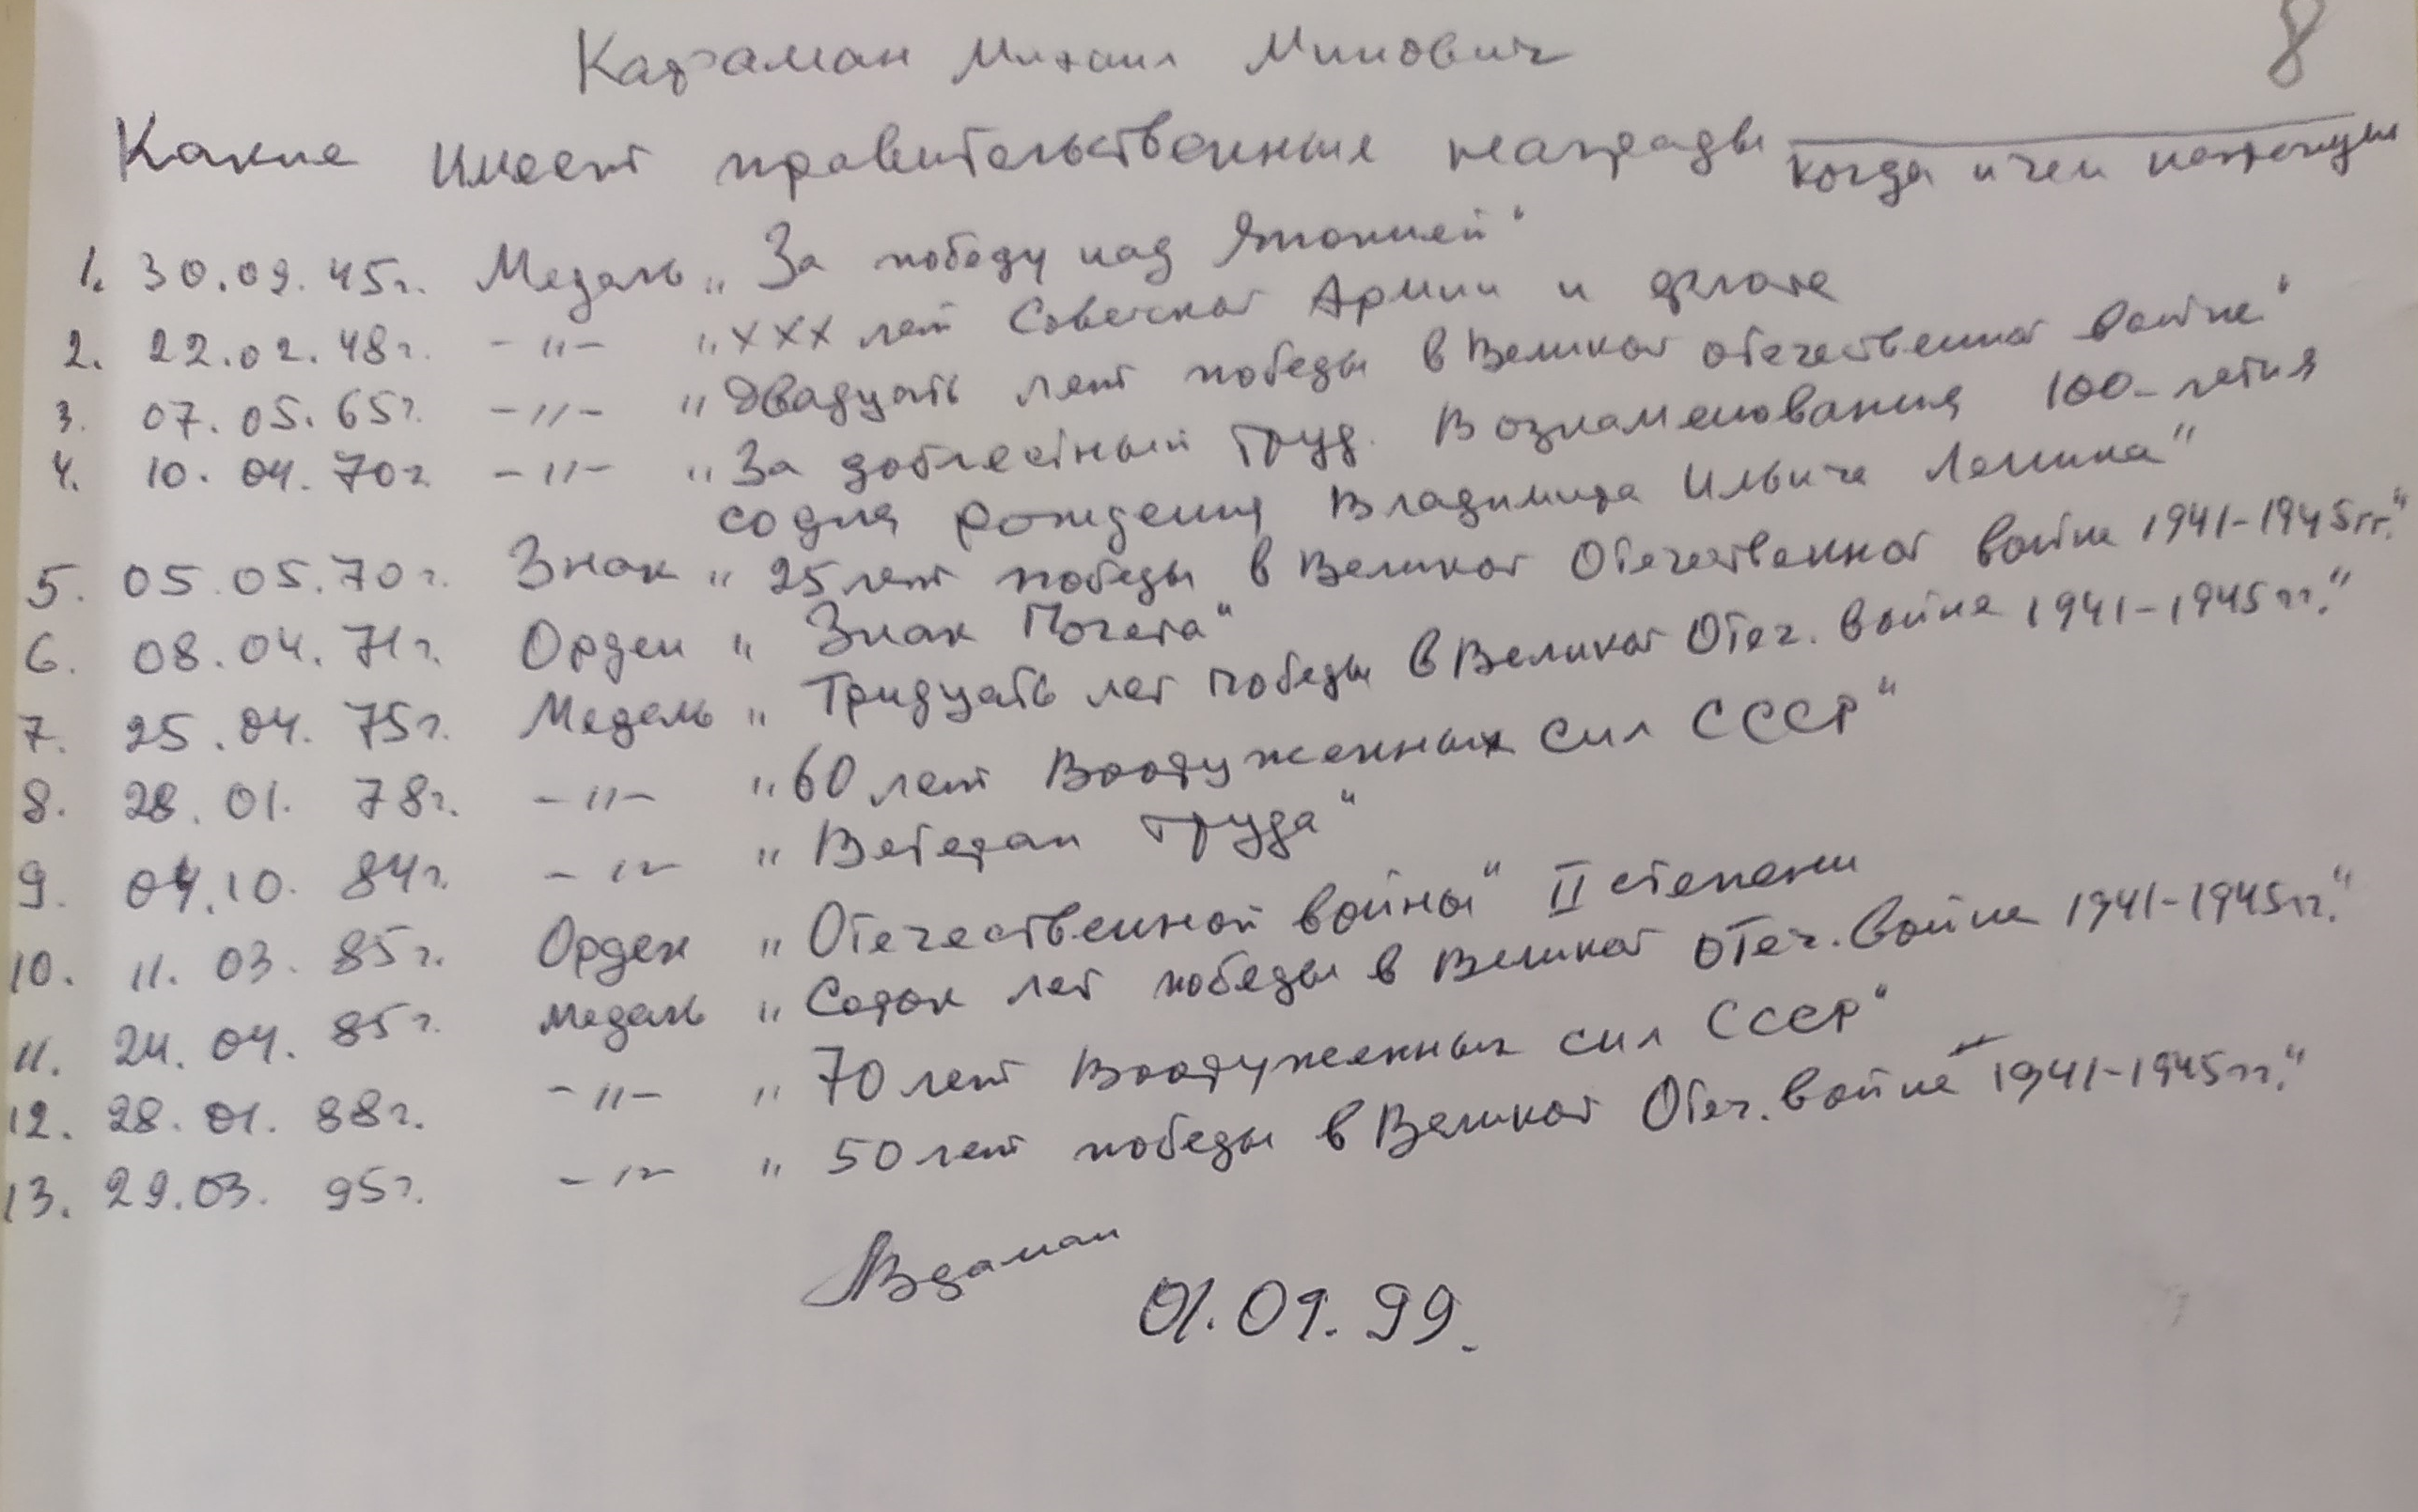 8
Караман Михаил Минович
Какие имеет правительственные награды когда и чем награжден
1. 30.09.45г. Медаль „За победу над Японией"
2. 22.02.48г. -"- „XXX лет Советской Армии и флота
3. 07.05.65г. -"- „Двадцать лет победы в Великой отечественной войне"
4. 10.04.70г. -"- „За доблестный труд. В ознаменования 100-летия
со дня рождения Владимира Ильича Ленина"
5. 05.05.70г. Знак „25 лет победы в Великой Отечественной войне 1941-1945гг."
6. 08.04.71г. Орден „Знак Почета"
7. 25.04.75г. Медаль „Тридцать лет победы в Великой Отеч. войне 1941-1945гг."
8. 28.01.78г. -"- „60 лет Вооруженных сил СССР"
9. 04.10.84г. -"- „Ветеран труда"
10. 11.03.85г. Орден „Отечественной войны" II степени
11. 24.04.85г. медаль „Сорок лет победы в Великой отеч. войне 1941-1945гг."
12. 28.01.88г. -"- „70 лет Вооруженных сил СССР"
13. 29.03.95г. -"- „50 лет победы в Великой Отеч. войне 1941-1945гг."
01.09.99.